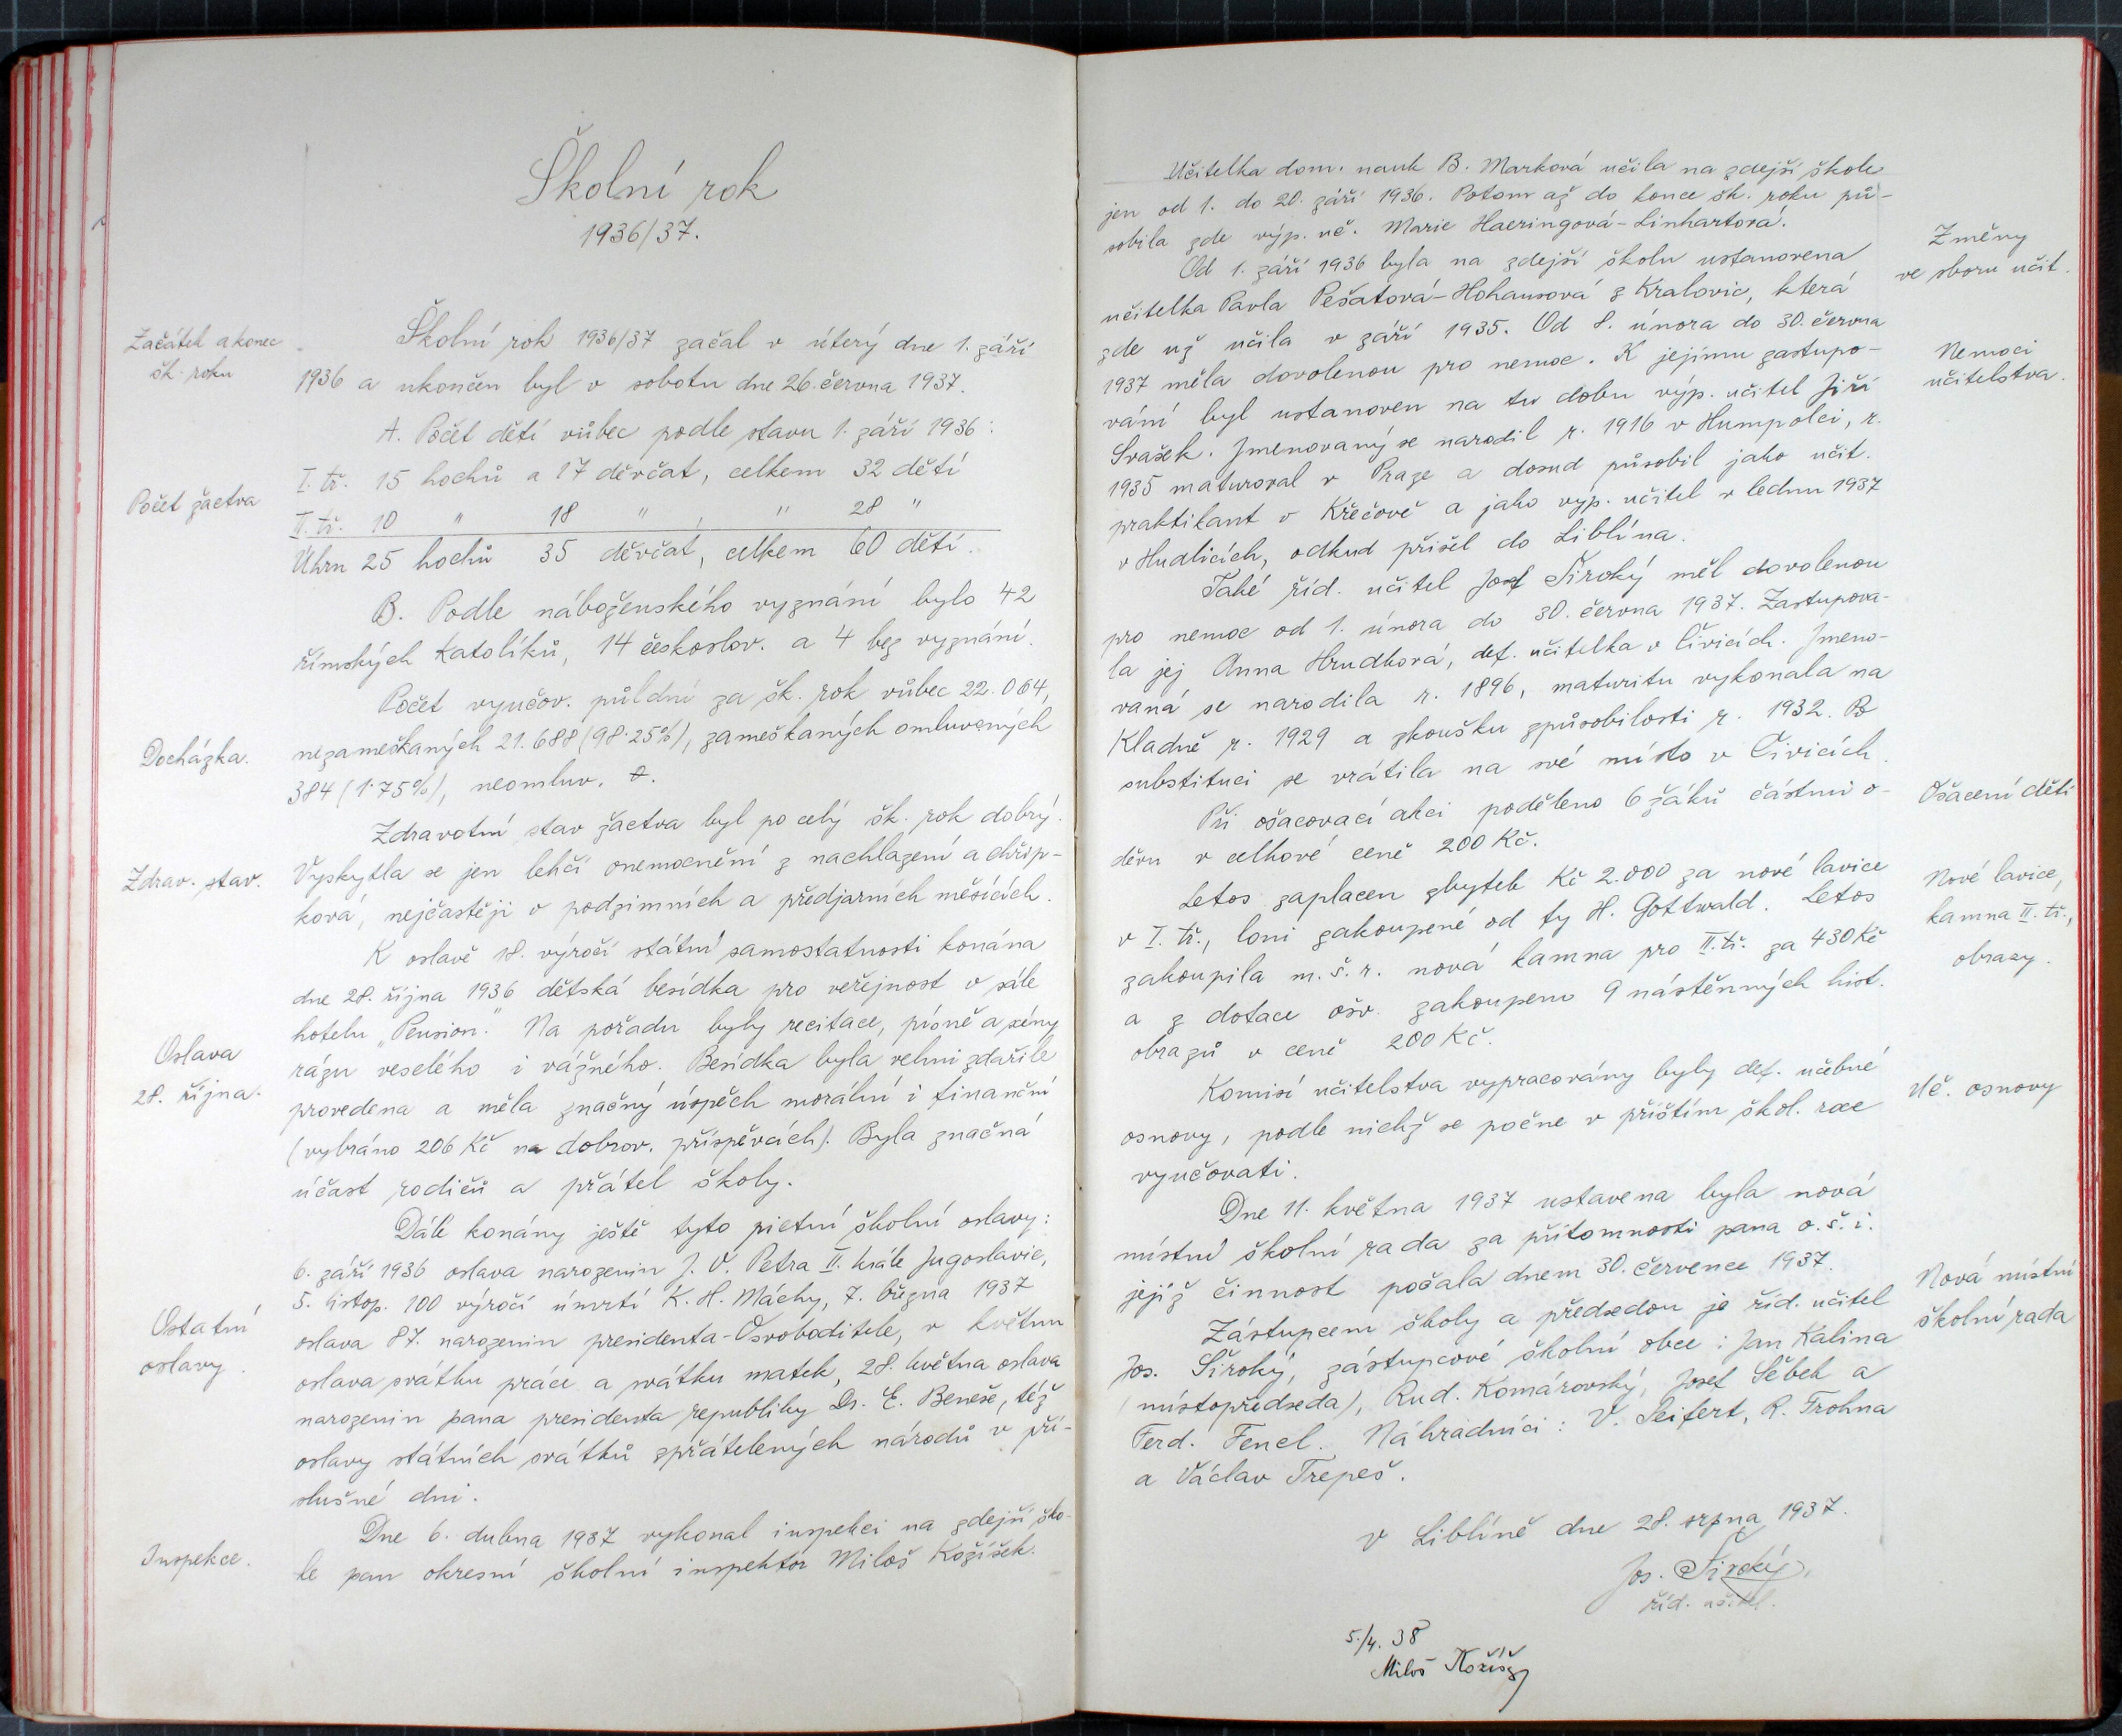 Školní rok
1936/37.
Začátek a konec
šk. roku
Školní rok 1936/37 začal v úterý dne 1. září
1936 a ukončen byl v sobotu dne 26. června 1937.
A. Počet dětí vůbec podle stavu 1. září 1936:
Počet žactva
I. tř. 15 hochů a 17 děvčat, celkem 32 dětí
II. tř. 10 " 18 " , " 28 "
Úhrn 25 hochů 35 děvčat, celkem 60 dětí.
B. Podle náboženského vyznání bylo 42
římských katolíků, 14 českoslov. a 4 bez vyznání.
Počet vyučov. půldní za šk. rok vůbec 22.064,
Docházka.
nezameškaných 21.688 (98·25%), zameškaných omluvených
384 (1·75%), neomluv. 0.
Zdravotní stav žactva byl po celý šk. rok dobrý.
Zdrav. stav.
Vyskytla se jen lehčí onemocnění z nachlazení a chřip-
ková, nejčastěji v podzimních a předjarních měsících.
K oslavě 18. výročí státní samostatnosti konána
dne 28. října 1936 dětská besídka pro veřejnost v sále
hotelu „Pension." Na pořadu byly recitace, písně a scény
Oslava
28. října.
rázu veselého i vážného. Besídka byla velmi zdařile
provedena a měla značný úspěch morální i finanční
(vybráno 206 Kč na dobrov. příspěvcích). Byla značná
účast rodičů a přátel školy.
Dále konány ještě tyto pietní školní oslavy:
6. září 1936 oslava narozenin J. V. Petra II. krále Jugoslavie,
5. listop. 100 výročí úmrtí K. H. Máchy, 7. března 1937
Ostatní
oslavy.
oslava 87. narozenin presidenta-Osvoboditele, v květnu
oslava svátku práce a svátku matek, 28. května oslava
narozenin pana presidenta republiky Dr. E. Beneše, též
oslavy státních svátků spřátelených národů v pří-
slušné dni.
Dne 6. dubna 1937 vykonal inspekci na zdejší ško-
Inspekce.
le pan okresní školní inspektor Miloš Kožíšek.
Učitelka dom. nauk B. Marková učila na zdejší škole
jen od 1. do 20. září 1936. Potom až do konce šk. roku pů-
sobila zde výp. uč. Marie Haeringová-Linhartová.
Změny
ve sboru učit.
Od 1. září 1936 byla na zdejší školu ustanovena
učitelka Pavla Pešatová-Hohausová z Kralovic, která
zde už učila v září 1935. Od 8. února do 30. června
Nemoci
učitelstva.
1937 měla dovolenou pro nemoc. K jejímu zastupo-
vání byl ustanoven na tu dobu výp. učitel Jiří
Svašek. Jmenovaný se narodil r. 1916 v Humpolci, r.
1935 maturoval v Praze a dosud působil jako učit.
praktikant v Křečově a jako výp. učitel v lednu 1937
v Hudlicích, odkud přišel do Liblína.
Také říd. učitel Josef Široký měl dovolenou
pro nemoc od 1. února do 30. června 1937. Zastupova-
la jej Anna Hrudková, def. učitelka v Čivicích. Jmeno-
vaná se narodila r. 1896, maturitu vykonala na
Kladně r. 1929 a zkoušku způsobilosti r. 1932. Po
substituci se vrátila na své místo v Čivicích.
Ošacení dětí
Při ošacovací akci poděleno 6 žáků částmi o-
děvu v celkové ceně 200 Kč.
Nové lavice,
kamna II. tř.,
obrazy.
Letos zaplacen zbytek Kč 2.000 za nové lavice
v I. tř., loni zakoupené od fy H. Gottwald. Letos
zakoupila m. š. r. nová kamna pro II. tř. za 430 Kč
a z dotace ošv. zakoupeno 9 nástěnných hist.
obrazů v ceně 200 Kč.
Uč. osnovy
Komisí učitelstva vypracovány byly def. učebné
osnovy, podle nichž se počne v příštím škol. roce
vyučovati.
Dne 11. května 1937 ustavena byla nová
místní školní rada za přítomnosti pana o. š. i.
jejíž činnost počala dnem 30. července 1937.
Nová místní
školní rada
Zástupcem školy a předsedou je říd. učitel
Jos. Široký, zástupcové školní obce: Jan Kalina
(místopředseda), Rud. Komárovský, Josef Šebek a
Ferd. Fencl. Náhradníci: V. Seifert, R. Trohna
a Václav Trepeš.
V Liblíně dne 28. srpna 1937.
Jos. Široký,
říd. učitel.
5./4. 38
Miloš Kožíšek